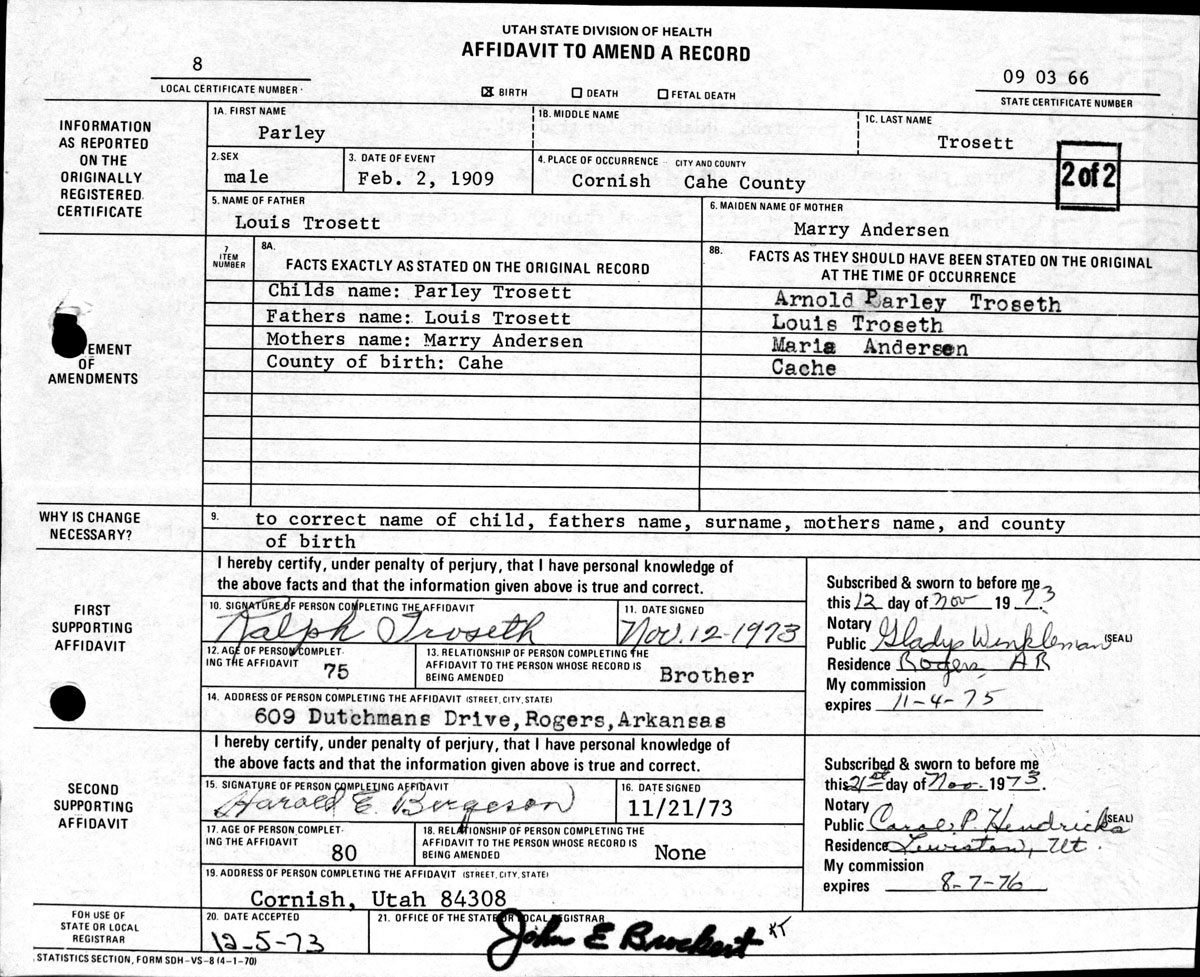 UTAH STATE DIVISION OF HEALTH
AFFIDAVIT TO AMEND A RECORD
8
LOCAL CERTIFICATE NUMBER
☒ BIRTH ☐ DEATH ☐ FETAL DEATH
09 03 66
STATE CERTIFICATE NUMBER
INFORMATION
AS REPORTED
ON THE
ORIGINALLY
REGISTERED
CERTIFICATE
1A. FIRST NAME
Parley
1B. MIDDLE NAME
1C. LAST NAME
Trosett
2. SEX
male
3. DATE OF EVENT
Feb. 2, 1909
4. PLACE OF OCCURRENCE - CITY AND COUNTY
Cornish Cahe County
2 of 2
5. NAME OF FATHER
Louis Trosett
6. MAIDEN NAME OF MOTHER
Marry Andersen
EMENT
OF
AMENDMENTS
7
ITEM
NUMBER
8A.
FACTS EXACTLY AS STATED ON THE ORIGINAL RECORD
8B.
FACTS AS THEY SHOULD HAVE BEEN STATED ON THE ORIGINAL
AT THE TIME OF OCCURRENCE
Childs name: Parley Trosett
Arnold Parley Troseth
Fathers name: Louis Trosett
Louis Troseth
Mothers name: Marry Andersen
Maria Andersen
County of birth: Cahe
Cache
WHY IS CHANGE
NECESSARY?
9.
to correct name of child, fathers name, surname, mothers name, and county
of birth
FIRST
SUPPORTING
AFFIDAVIT
I hereby certify, under penalty of perjury, that I have personal knowledge of
the above facts and that the information given above is true and correct.
10. SIGNATURE OF PERSON COMPLETING THE AFFIDAVIT
Ralph Troseth
11. DATE SIGNED
Nov. 12-1973
12. AGE OF PERSON COMPLET-
ING THE AFFIDAVIT
75
13. RELATIONSHIP OF PERSON COMPLETING THE
AFFIDAVIT TO THE PERSON WHOSE RECORD IS
BEING AMENDED
Brother
14. ADDRESS OF PERSON COMPLETING THE AFFIDAVIT (STREET, CITY, STATE)
609 Dutchmans Drive, Rogers, Arkansas
Subscribed & sworn to before me
this 12 day of Nov 1973
Notary
Public Gladys Winkleman (SEAL)
Residence Rogers AR
My commission
expires 11-4-75
SECOND
SUPPORTING
AFFIDAVIT
I hereby certify, under penalty of perjury, that I have personal knowledge of
the above facts and that the information given above is true and correct.
15. SIGNATURE OF PERSON COMPLETING AFFIDAVIT
Harold E. Bergeson
16. DATE SIGNED
11/21/73
17. AGE OF PERSON COMPLET-
ING THE AFFIDAVIT
80
18. RELATIONSHIP OF PERSON COMPLETING THE
AFFIDAVIT TO THE PERSON WHOSE RECORD IS
BEING AMENDED
None
19. ADDRESS OF PERSON COMPLETING THE AFFIDAVIT (STREET, CITY, STATE)
Cornish, Utah 84308
Subscribed & sworn to before me
this 21st day of Nov. 1973.
Notary
Public Carol P. Hendricks (SEAL)
Residence Lewiston, Ut.
My commission
expires 8-7-76
FOR USE OF
STATE OR LOCAL
REGISTRAR
20. DATE ACCEPTED
12-5-73
21. OFFICE OF THE STATE OR LOCAL REGISTRAR
John E Brockert KT
STATISTICS SECTION, FORM SDH-VS-8 (4-1-70)